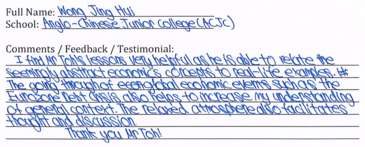 Full Name: Wong Jing Hui
School: Anglo-Chinese Junior College (ACJC)
Comments / Feedback / Testimonial:
I find Mr Toh's lessons very helpful as he is able to relate the
seemingly abstract economics concepts to real-life examples.
The going through of global economic events such as the
Eurozone Debt crisis also helps to increase my understanding
of general context. The relaxed atmosphere also facilitates
thought and discussion.
Thank you Mr Toh!